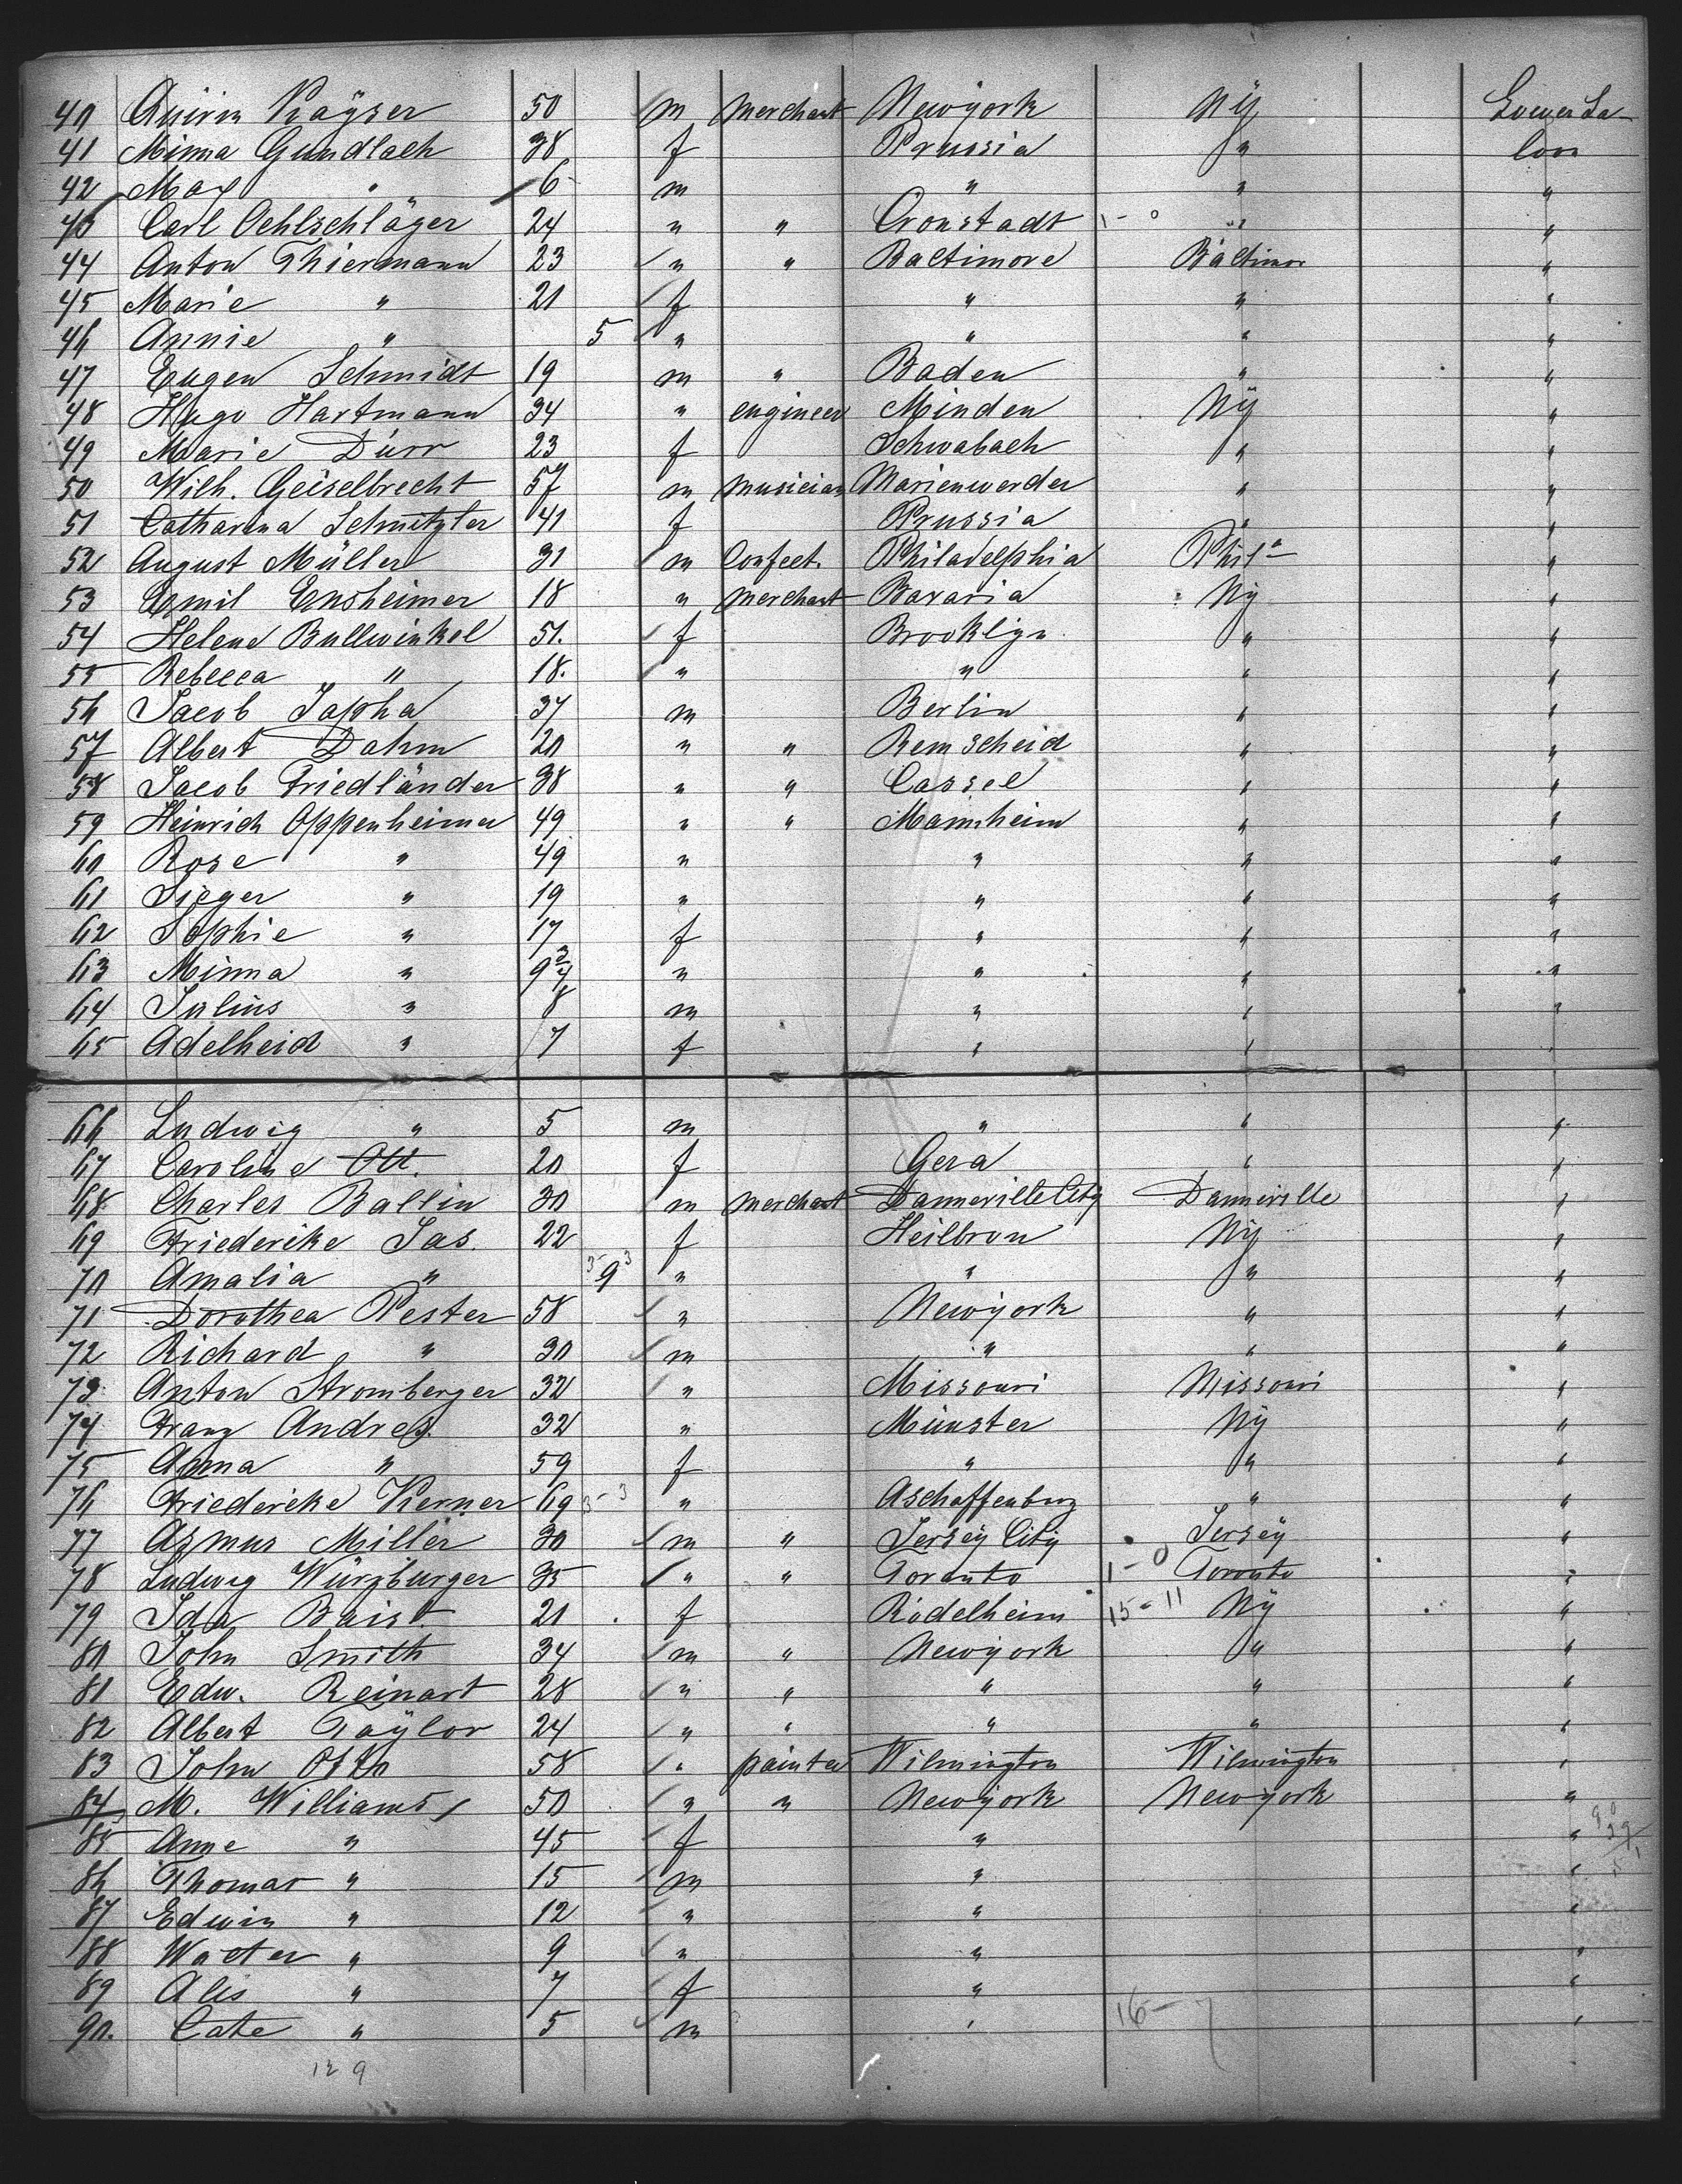 40 Kayser 50 m merchant Newyork Ny Lower Sa-
41 Minna Gundlach 38 f Prussia " loon
42 Max " 6 m " " "
43 Carl Oehlschläger 24 " " Cronstadt 1-0 " "
44 Anton Thiermann 23 " " Baltimore Baltimor "
45 Marie " 21 f " " "
46 Annie " 5 " " " "
47 Eugen Schmidt 19 m " Baden " "
48 Hugo Hartmann 34 " engineer Minden Ny "
49 Marie Dürr 23 f Schwabach " "
50 Wilh. Geiselbrecht 57 m musician Marienwerder " "
51 Catharina Schnitzler 41 f Prussia " "
52 August Müller 31 m Confect. Philadelphia Phila "
53 Emil Ensheimer 18 " merchant Bavaria Ny "
54 Helene Bullwinkel 51. f Brooklyn " "
55 Rebecca " 18. " " " "
56 Jacob Japha 37 m Berlin " "
57 Albert Dahm 20 " " Remscheid " "
58 Jacob Friedländer 38 " " Cassel " "
59 Heinrich Oppenheimer 49 " " Mannheim " "
60 Rose " 49 " " " "
61 Sieger " 19 " " " "
62 Sophie " 17 f " " "
63 Minna " 9 3/4 " " " "
64 Julius " 8 m " " "
65 Adelheid " 7 f " " "
66 Ludwig " 5 m " " "
67 Caroline Ott. 20 f Gera " "
68 Charles Ballin 30 m merchant Danneville City Danneville "
69 Friederike Jas. 22 f Heilbron Ny "
70 Amalia " 3-3 9 " " " "
71 Dorothea Pester 58 " Newyork " "
72 Richard " 30 m " " "
73 Anton Stromberger 32 " Missouri Missouri "
74 Franz Andres. 32 " Münster Ny "
75 Anna " 59 f " " "
76 Friedericke Kerner 69 3-3 " Aschaffenburg " "
77 Asmus Miller 30 m " Jersey City Jersey "
78 Ludwig Würzburger 35 " " Toronto 1-0 Toronto "
79 Ida Baist 21 f Rödelheim 15-11 Ny "
80 John Smith 34 m " Newyork " "
81 Edw. Reinart 28 " " " " "
82 Albert Taylor 24 " " " " "
83 John Otto 58 " painter Wilmington Wilmington "
84 M. Williams 50 " " Newyork Newyork "
85 Anne " 45 f " "
86 Thomas " 15 m " "
87 Edwin " 12 " " "
88 Walter " 9 " " "
89 Alis " 7 f " "
90. Cate " 5 m " 16-7 "
129